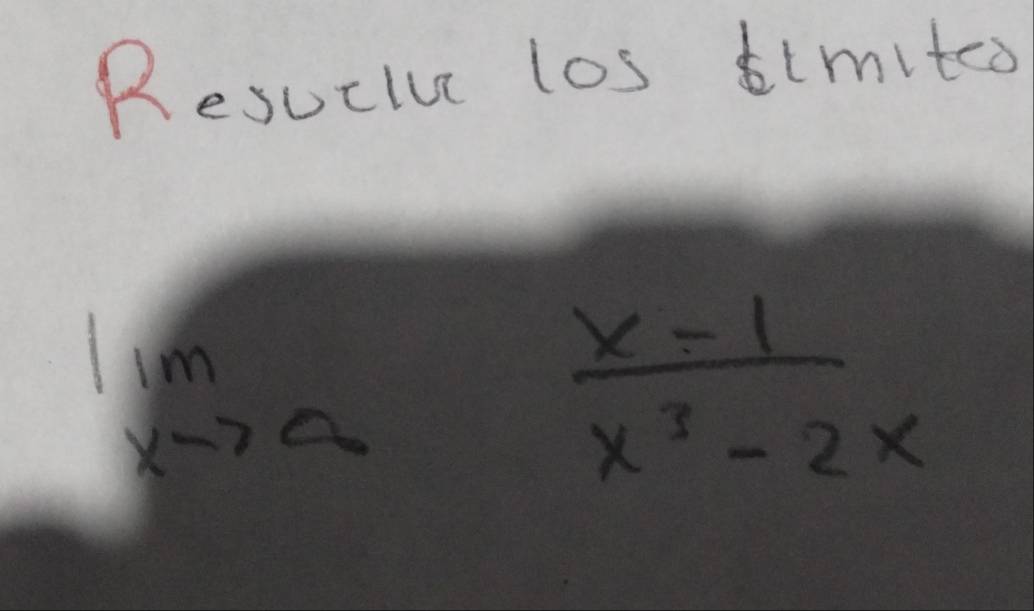 Resuelve los límites
lim x - 1
x -> ∞ x³ - 2x